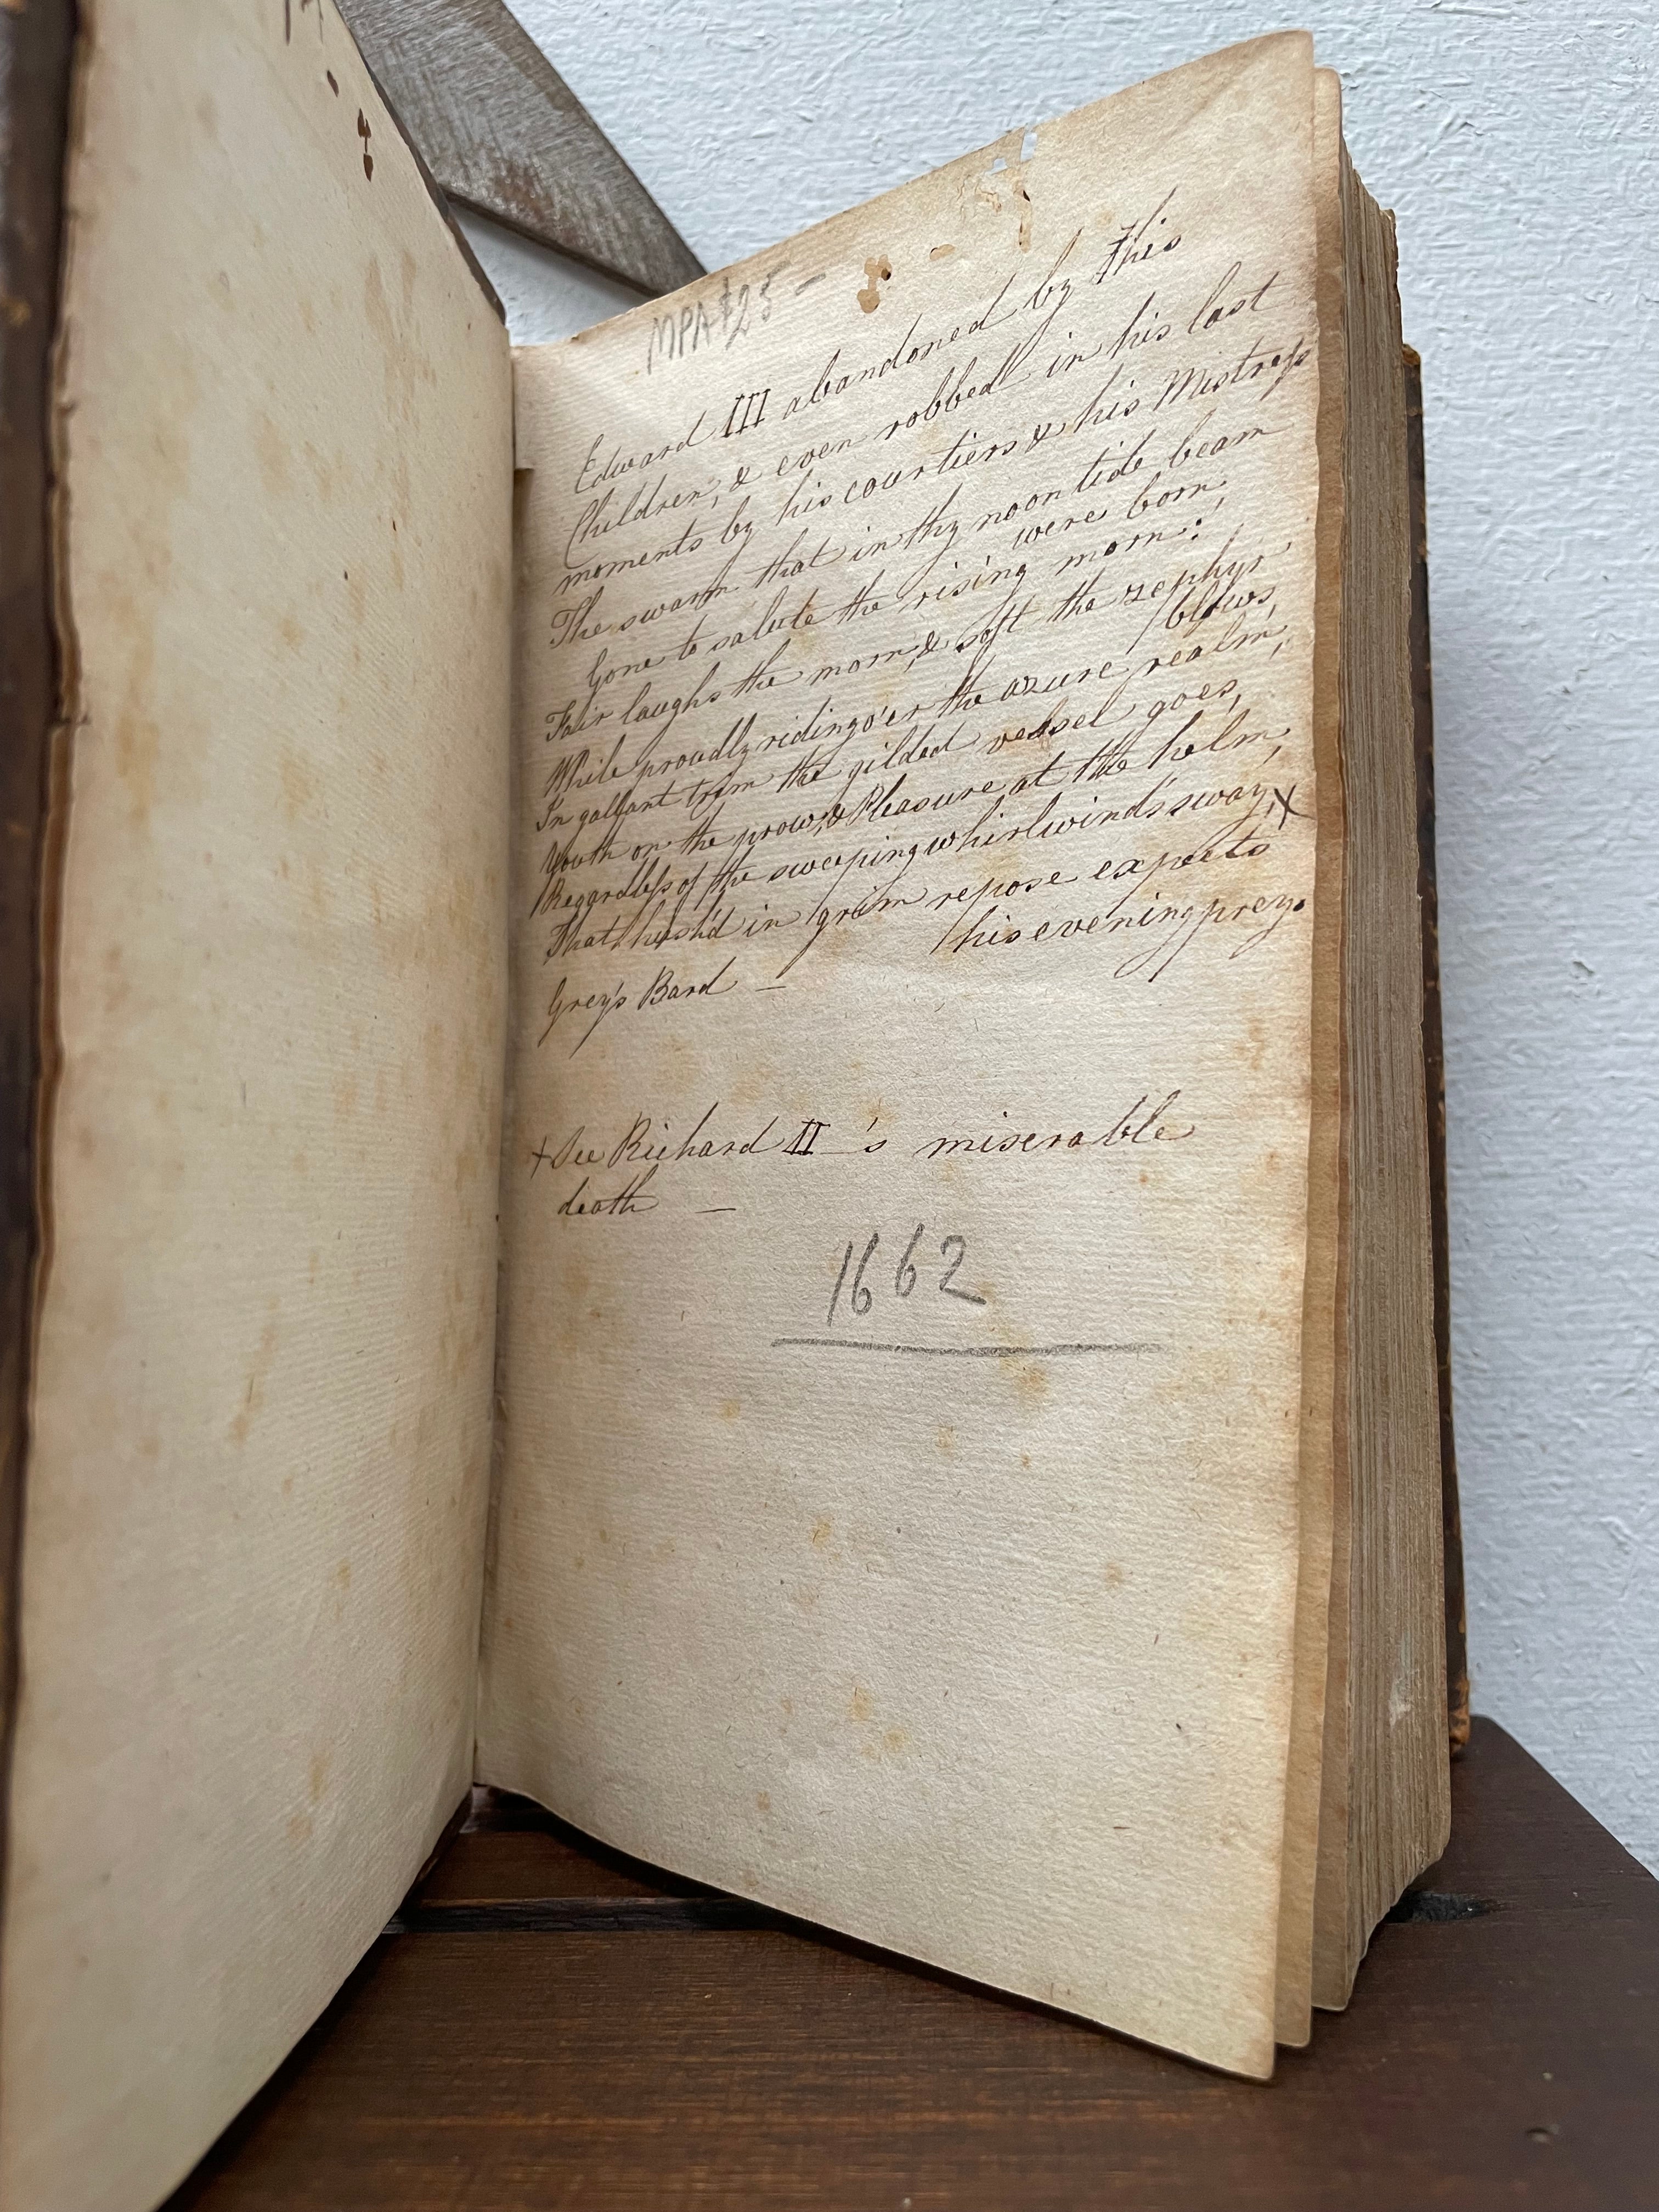 MPA $25 -
Edward III abandoned by this
Children, & even robbed in his last
moments by his courtiers & his Mistress
The swarm that in thy noontide beam
were born,
Gone to salute the rising morn:
Fair laughs the morn, & soft the zephyr
blows,
While proudly riding o'er the azure realm,
In gallant trim the gilded vessel goes,
Youth on the prow, & Pleasure at the helm,
Regardless of the sweeping whirlwind's sway, x
That hush'd in grim repose expects
his evening prey.
Grey's Bard —
x See Richard II's miserable
death —
1662